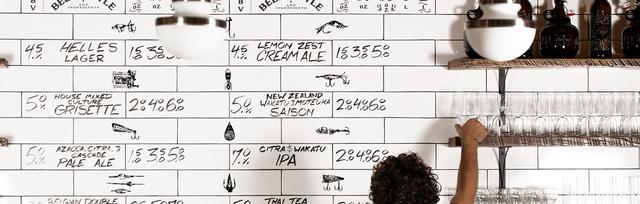 B V
OZ OZ
B V
OZ OZ
4.5 % HELLES LAGER 1.5 3.5 5.0
4.5 % LEMON ZEST CREAM ALE 1.5 3.5 5.0
5.0 % HOUSE MIXED CULTURE GRISETTE 2.0 4.0 6.0
5.0 % NEW ZEALAND WAKATU & MOTEUKA SAISON 2.0 4.0 6.0
5.0 % AZACCA, CITRA, & CASCADE PALE ALE 1.5 3.5 5.0
7.0 % CITRA & WAKATU IPA 2.0 4.0 6.0
BELGIAN DOUBLE
THAI TEA